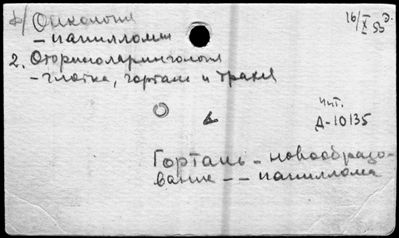 1/ Онкология
- папиллома
16/X 53 г.
2. Оториноларингология
- глотка, гортань и трахея
инт.
Д-10135
Гортань - новообразо-
вание - - папиллома